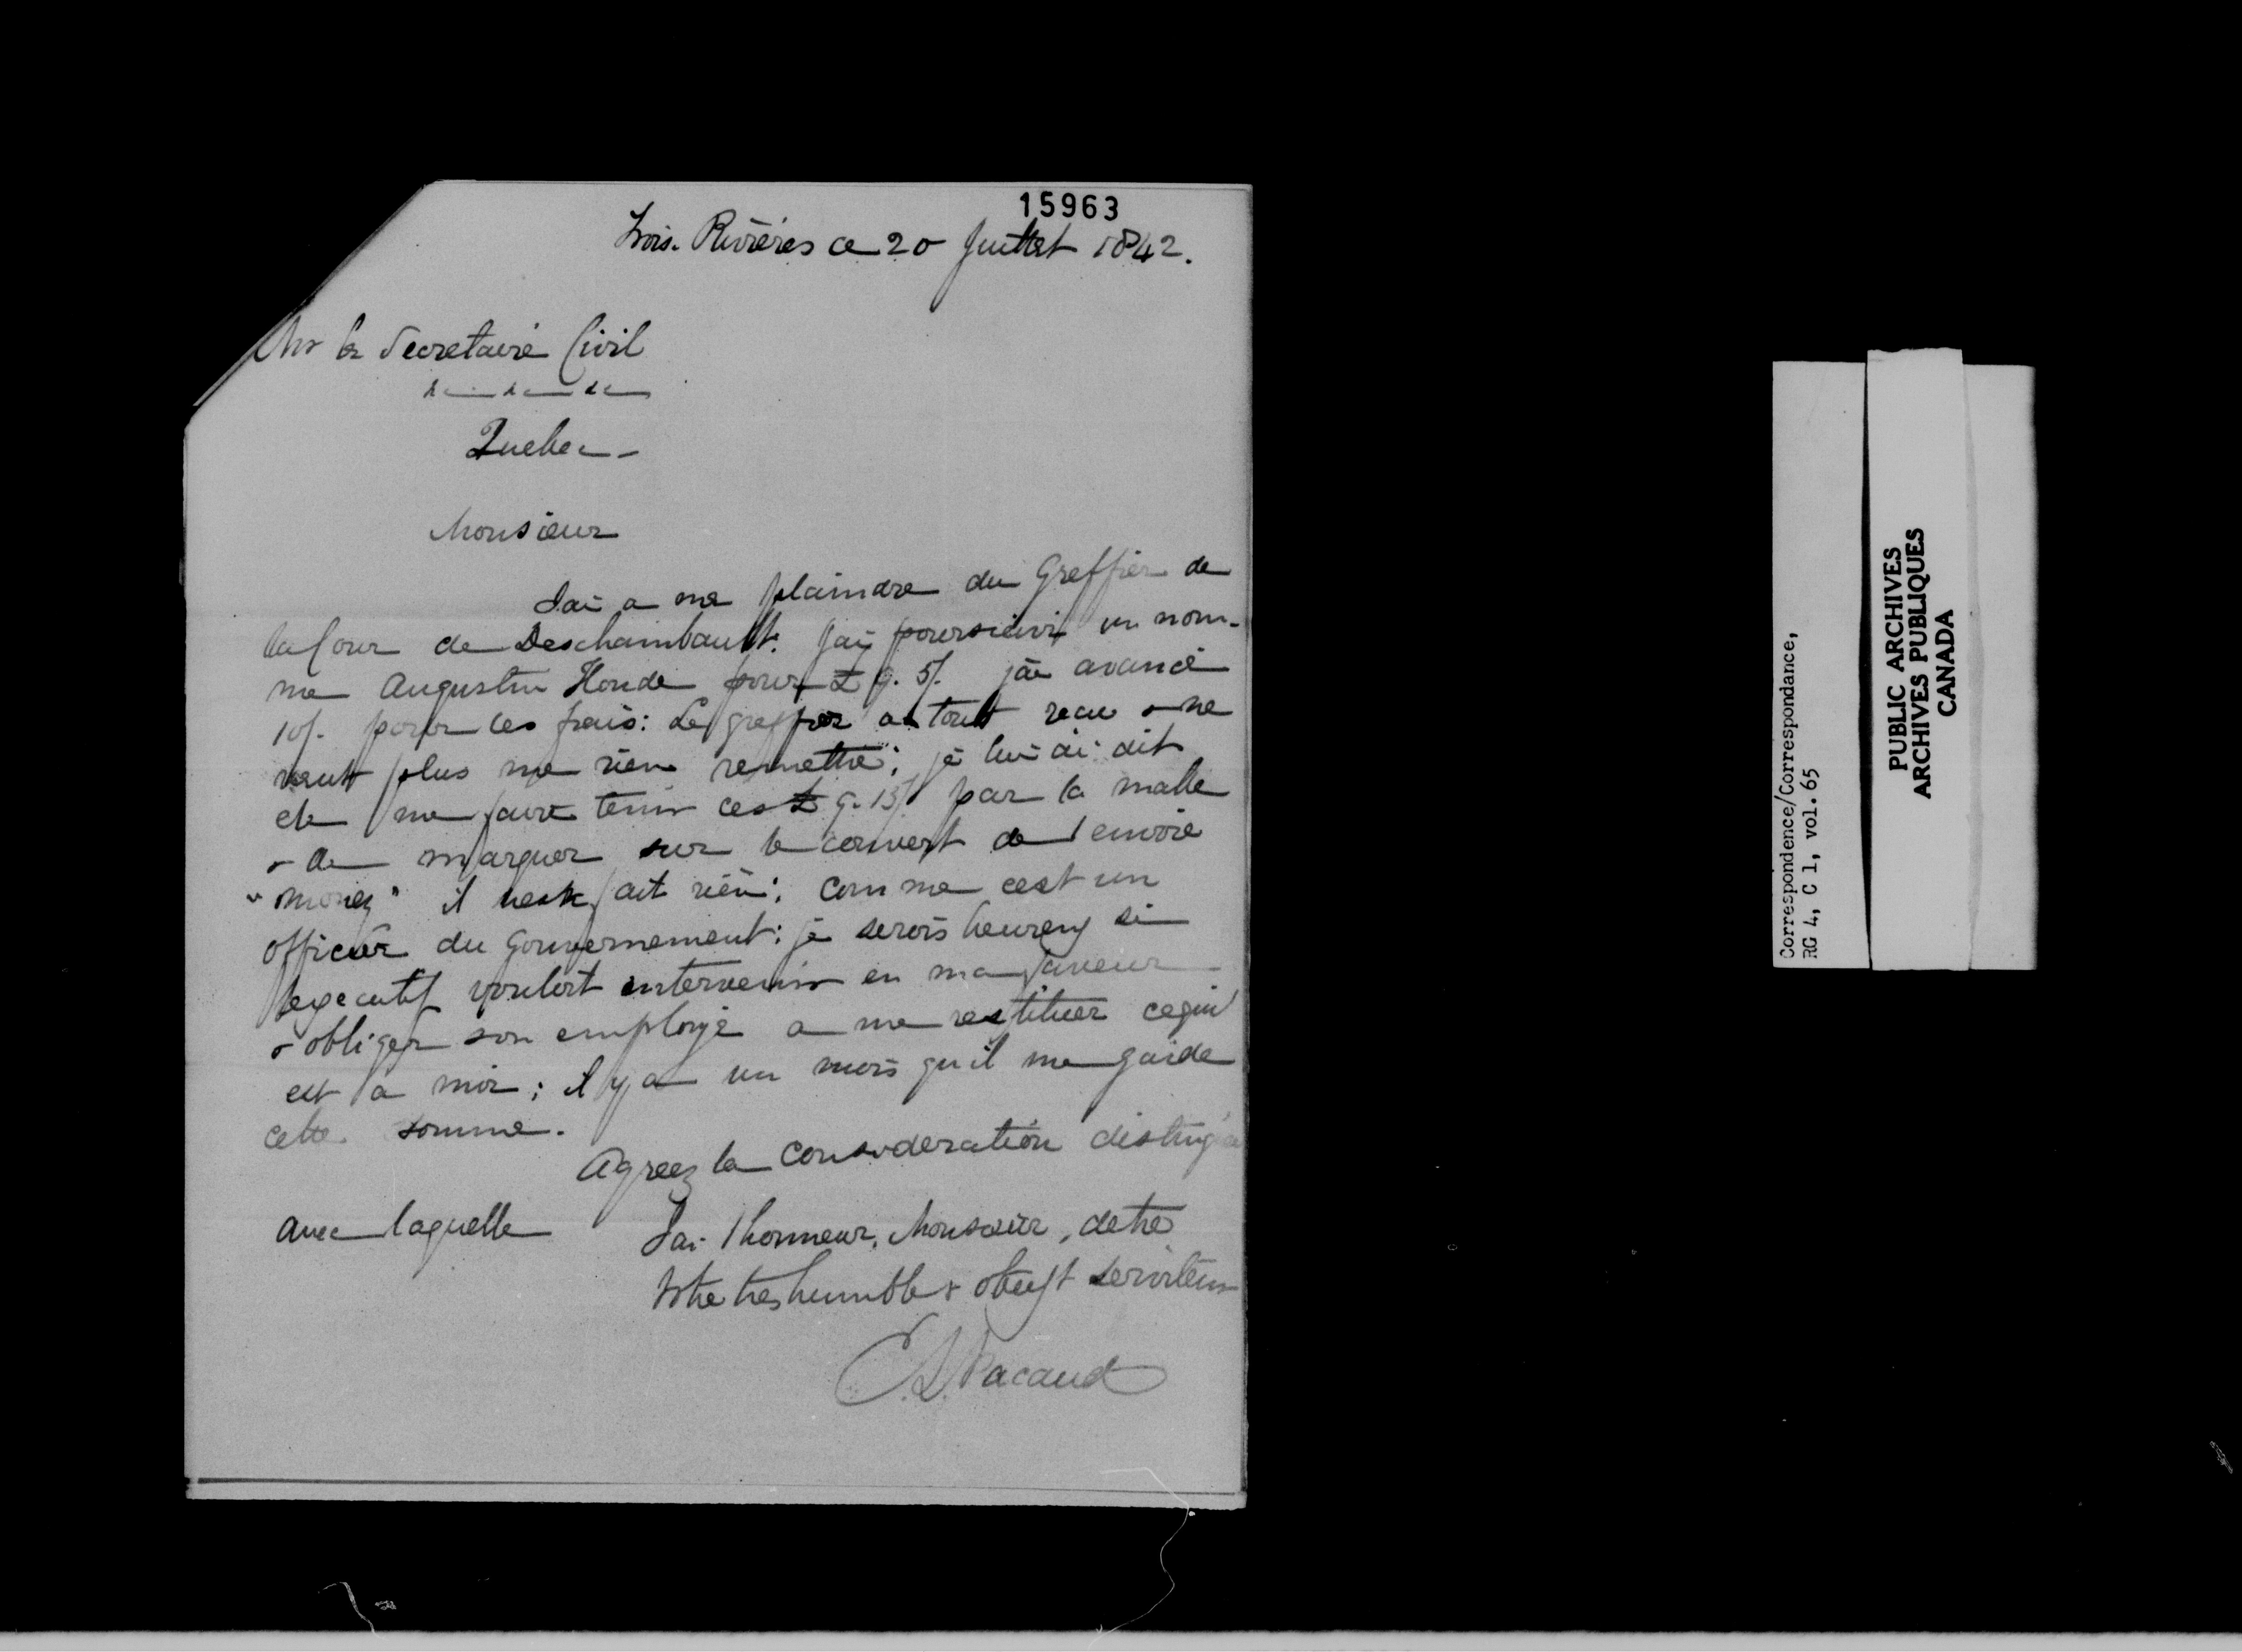 15963
Trois-Rivières ce 20 Juillet 1842.
Mr le Secretaire Civil
Quebec -
Monsieur
Jai a me plaindre du Greffier de
la Cour de Deschambault. Jai poursuivi un nom-
me Augustin Houde pour £ 9. 5/. jai avancé
10/. pour les frais: Le greffier a tout recu & ne
veut plus me rien remettre; je lui ai dit
de me faire tenir ces £ 9. 15/ par la malle
& de marquer sur le couvert de l envoie
"money" il n'en fait rien: Comme cest un
officier du Gouvernement: je serois heureux si
lexecutif vouloit intervenir en ma faveur
& obliger son employé a me restituer cequi
est à moi; il y a un mois qu il me garde
cette somme.
Agreez la consideration distinguée
avec laquelle
Jai l honneur, Monsieur, detre
Votre tres humble & obeist serviteur
E. L. Pacaud
Correspondence/Correspondance,
RG 4, C 1, vol. 65
PUBLIC ARCHIVES
ARCHIVES PUBLIQUES
CANADA